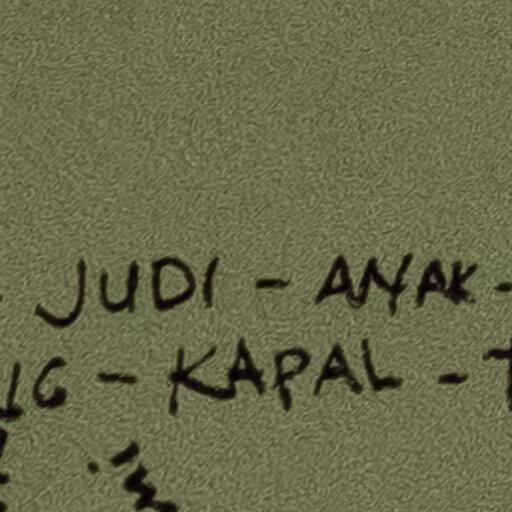 JUDI - ANAK -
IG - KAPAL -